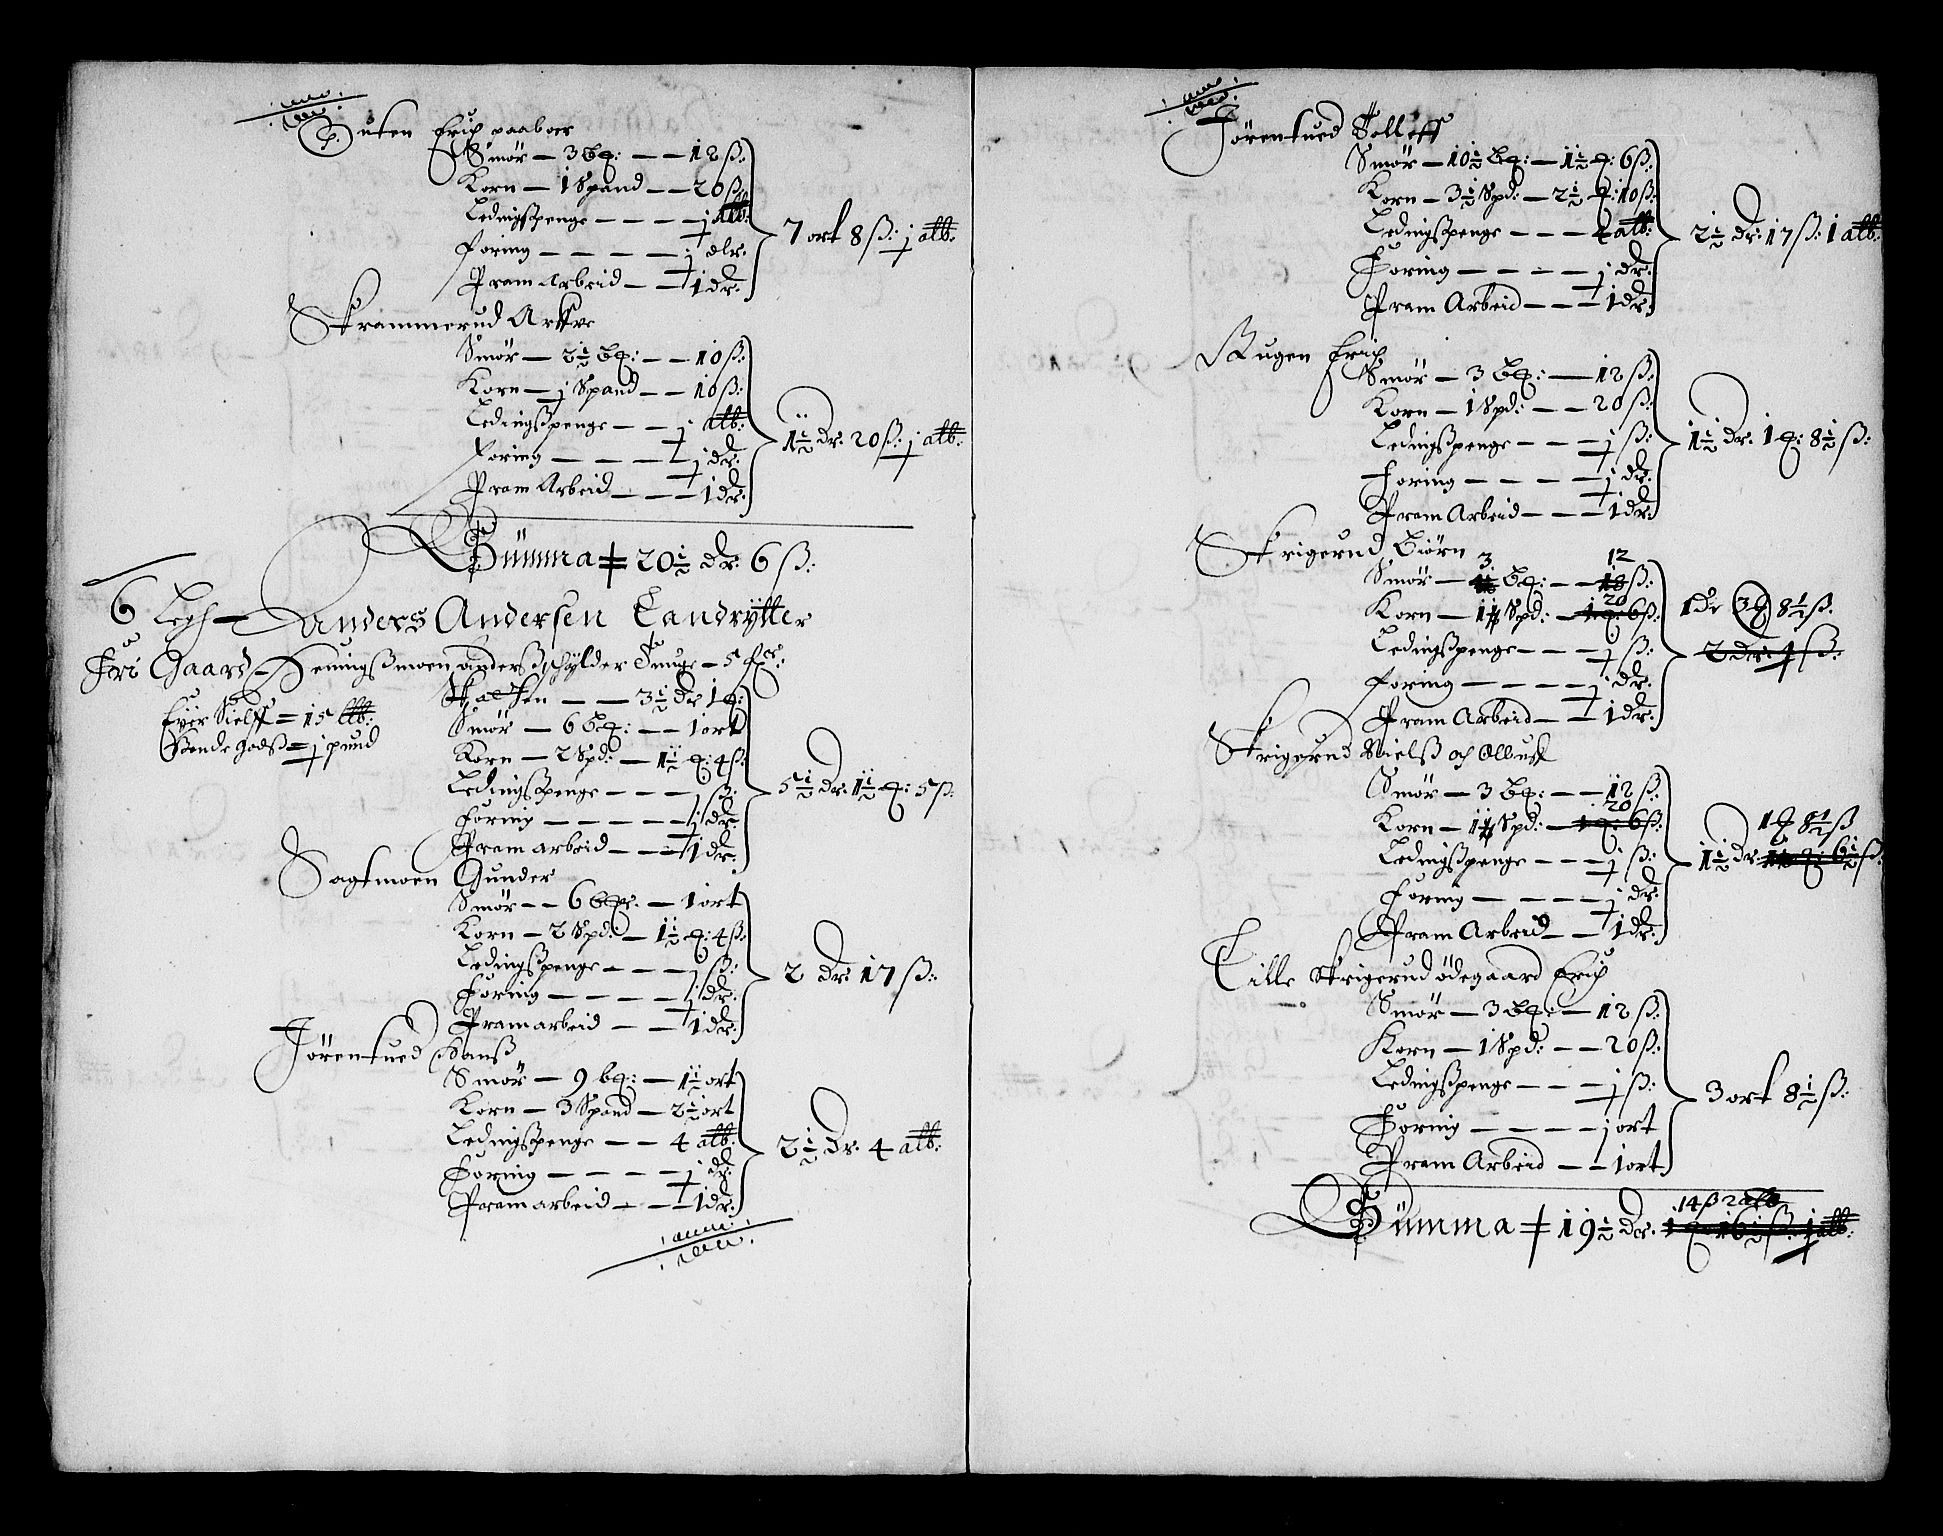 uten Erich paaboer
Smör — 3 bℓ: — — 12 ß:
Korn — 1 Spand — — 20 ß:
Ledingßpenge — — — — j alb:
Foring — — — — — j dlr:
Pram Arbeid — — 1 dr:
7 ort 8 ß: j alb:
Skrammerud
Smör — 2½ bℓ: — — 10 ß:
Korn — j Spand — — 10 ß:
Ledingßpenge — — j alb:
Foring — — — — j dr:
Pram Arbeid — — — 1 dr:
1½ dr: 20 ß: j alb:
Summa 20½ dr: 6 ß:
6 Legh — Anders Andersen Landrÿtter
Fri Gaard — Heningßmoen anderß schÿlder — 5
Eÿer Sielff = 15 lb:
Bonde godß = j pund
— — 3½ dr 1
Smör — 6 bℓ: — — 1 ort
Korn — 2 Spd: — 1½ 4 ß:
Ledingßpenge — — — j ß:
Foring — — — — — j dr:
Pram arbeid — — — 1 dr:
5½ dr: 1½ 5 ß:
Sagtmoen Gunder
Smör — — 6 — 1 ort
Korn — 2 Spd: — 1½ 4 ß:
Ledingßpenge — — — j ß:
Foring — — — — — j dr:
Pram arbeid — — — 1 dr:
2 dr: 17 ß:
Jörentued Hanß
Smör — 9 bℓ: — 1½ ort
Korn — 3 Spand — 2½ ort
Ledingßpenge — — 4 alb:
Foring — — — — j dr:
Pram arbeid — — 1 dr:
2½ dr: 4 alb:
Jörentued Tolleff
Smör — 10½ bℓ: — 1½ 6 ß:
Korn — 3½ Spd: — 2½ 10 ß:
Ledingßpenge — — — 4 alb:
Foring — — — — j dr:
Pram Arbeid — — — 1 dr:
2½ dr: 17 ß: 1 alb:
Rugen Erich
Smör — 3 bℓ: — 12 ß:
Korn — 1 Spd: — — 20 ß:
Ledingßpenge — — — j ß:
Foring — — — — — j dr:
Pram Arbeid — — — 1 dr:
1½ dr: 1 8½ ß:
Skrigerud Biörn
3 12
Smör — bℓ: — — 18 ß:
20
Korn — Spd: — 1 6 ß:
Ledingßpenge — — — j ß:
Foring — — — — — j dr:
Pram Arbeid — — 1 dr:
1 dr 3 8½ ß:
2 dr: 4 ß:
Skrigerud Nielß och Olluff
Smör — 3 bℓ: — — 12 ß:
20
Korn — Spd: — 1 6 ß:
Ledingßpenge — — — j ß:
Foring — — — — j dr:
Pram Arbeid — — 1 dr:
1 8½ ß
1½ dr: 6½ ß:
Lille Skrigerud ödegaard Erich
Smör — 3 bℓ: — 12 ß:
Korn — 1 Spd: — — 20 ß:
Ledingßpenge — — — j ß:
Foring — — — — j ort
Pram Arbeid — — 1 ort
3 ort 8½ ß:
14 ß 2 alb
Summa 19½ dr: 1 16½ ß: j alb: